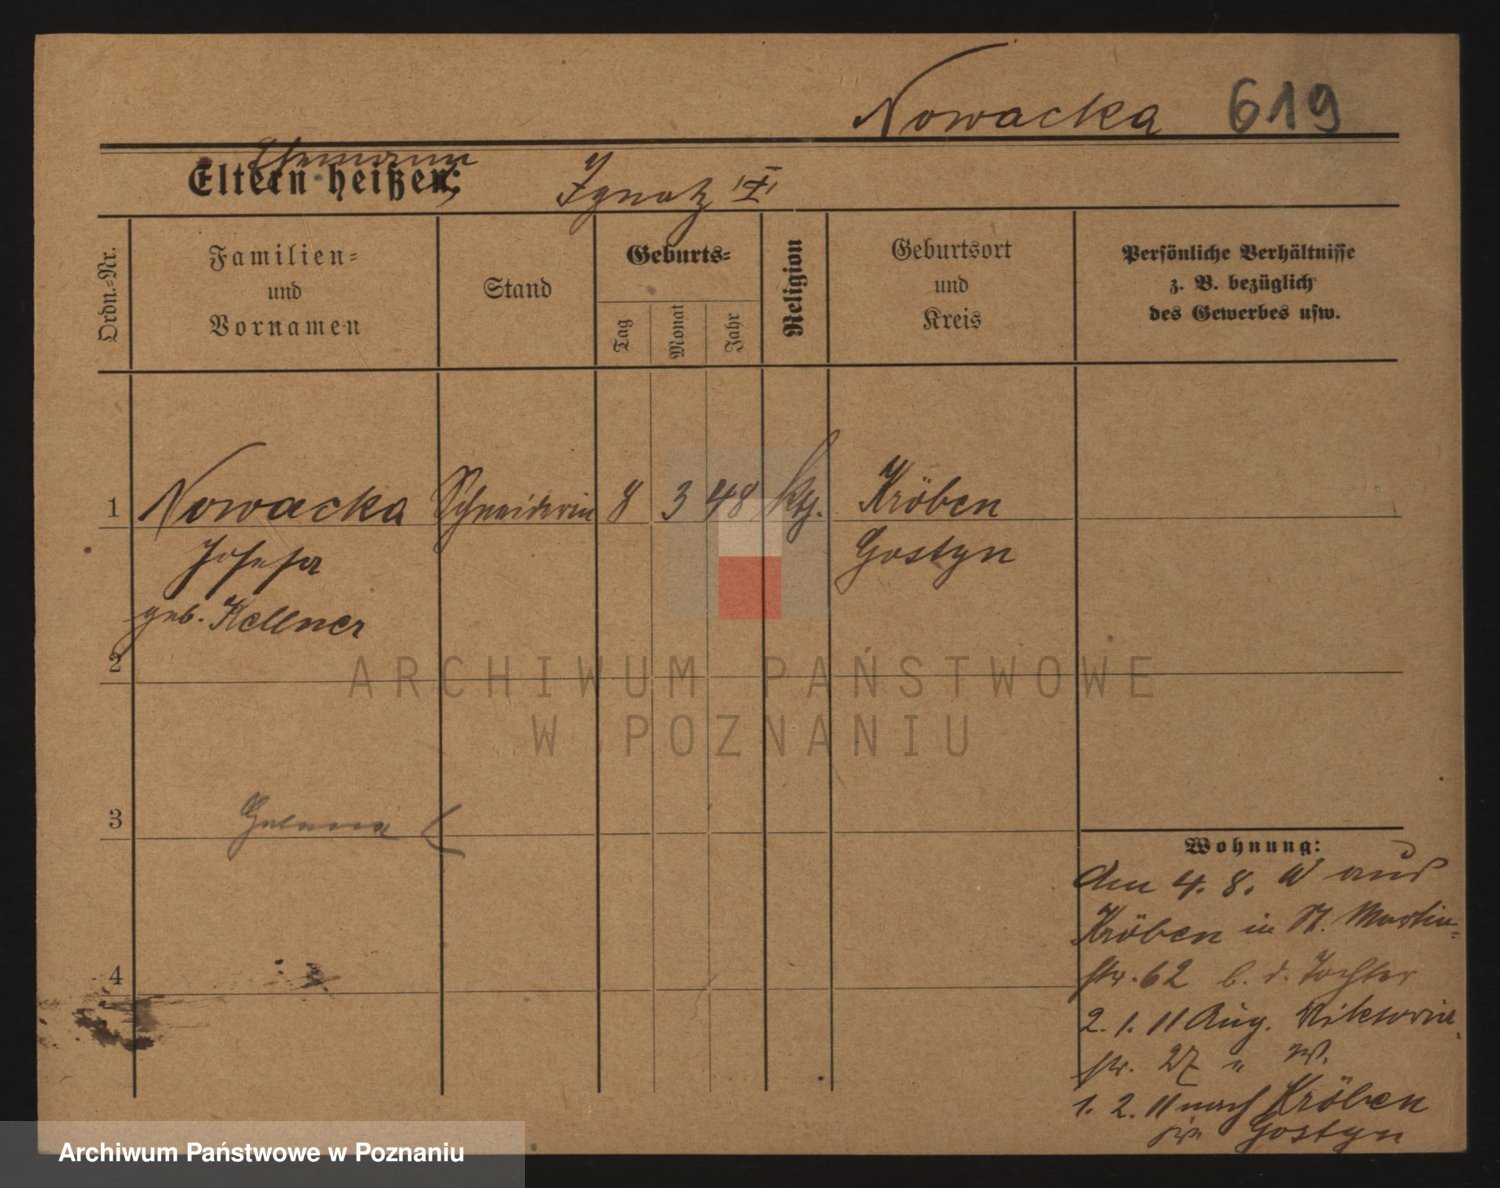 Nowacka 619
Ehemann
Eltern heißen: Ignatz "I"
Ordn.-Nr.
Familien-
und
Vornamen
Stand
Geburts-
Tag
Monat
Jahr
Religion
Geburtsort
und
Kreis
Persönliche Verhältnisse
z. B. bezüglich
des Gewerbes usw.
1 Nowacka Schneiderin 8 3 48 kth. Kröben
Josefa Gostyn
geb. Kellner
2
3
4
Wohnung:
den 4. 8. aus
Kröben in St. Martin-
str. 62 b. d. Tochter
2. 1. 11 Aug. Viktoria-
str. 27 " W.
1. 2. 11 nach Kröben
Gostyn
ARCHIWUM PAŃSTWOWE
W POZNANIU
Archiwum Państwowe w Poznaniu